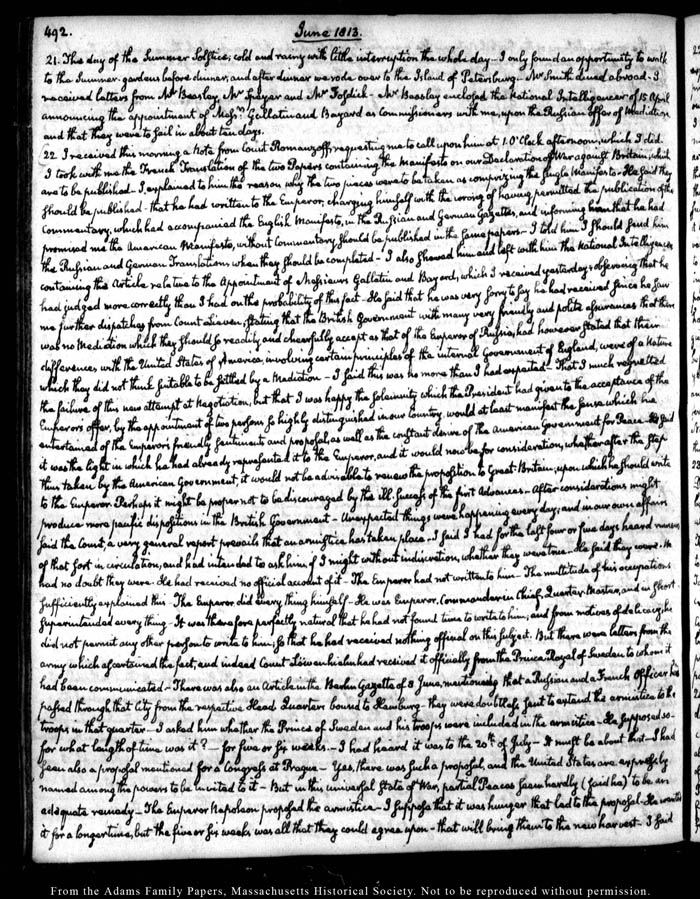 492. June 1813.
21. The day of the Summer Solstice; cold and rainy with little interruption the whole day - I only found an opportunity to walk
to the Summer-gardens before dinner; and after dinner we rode over to the Island of Petersburg - Mr Smith dined abroad. I
received letters from Mr Beasley, Mr Speyer and Mr Fosdick - Mr Beasley enclosed the National Intelligencer of 15 April
announcing the appointment of Messrs Gallatin and Bayard as Commissioners with me, upon the Russian offer of Mediation
and that they were to sail in about ten days.
22. I received this morning a Note from Count Romanzoff, requesting me to call upon him at 1. O'Clock afternoon, which I did
I took with me the French Translation of the two Papers containing the Manifesto on our Declaration of War against Britain, which
are to be published - I explained to him the reason why the two pieces were to be taken as comprizing the single Manifesto - He said they
should be published - that he had written to the Emperor, charging himself with the wrong of having permitted the publication of the
Commentary, which had accompanied the English Manifesto, in the Russian and German Gazettes, and informing him that he had
promised me the American Manifesto, without Commentary should be published in the same papers - I told him I should send him
the Russian and German Translations when they should be completed - I also shewed him and left with him the National Intelligencer
containing the Article relative to the Appointment of Messieurs Gallatin and Bayard, which I received yesterday; observing that he
had judged more correctly than I had on the probability of this fact - He said that he was very sorry to say he had received since he saw
me further dispatches from Count Lieven, stating that the British Government with many very friendly and polite assurances that there
was no Mediation which they should so readily and chearfully accept as that of the Emperor of Russia, had however stated that their
differences with the United States of America, involving certain principles of the internal Government of England, were of a Nature
which they did not think suitable to be settled by a Mediation - I said this was no more than I had expected. That I much regretted
the failure of this new attempt at Negotiation, but that I was happy the solemnity which the President had given to the acceptance of the
Emperor's offer, by the appointment of two persons so highly distinguished in our Country, would at least manifest the sense which he
entertained of the Emperor's friendly sentiment and proposal, as well as the constant desire of the American Government for Peace - He said
it was the light in which he had already represented it to the Emperor, and it would now be for consideration, whether after the step
thus taken by the American Government, it would not be advisable to renew the proposition to Great-Britain, upon which he should write
to the Emperor. Perhaps it might be proper not to be discouraged by the ill success of the first Advances - After considerations might
produce more pacific dispositions in the British Government - Unexpected things were happening every day; and in our own affairs
said the Count, a very general report prevails that an armistice has taken place - I said I had for the last four or five days heard rumours
of that sort in circulation, and had intended to ask him, if I might without indiscretion, whether they were true - He said they were. He
had no doubt they were. He had received no official account of it - The Emperor had not written to him - The multitude of his occupations
sufficiently explained this - The Emperor did every thing himself - He was Emperor, Commander in Chief, Quarter-Master, and in short
superintended every thing - It was therefore perfectly natural that he had not found time to write to him; and from motives of delicacy, he
did not permit any other person to write to him; so that he had received nothing official on this subject. But there were letters from the
army which ascertained the fact, and indeed Count Löwenhielm had received it officially from the Prince Royal of Sweden to whom it
had been communicated - There was also an Article in the Berlin Gazette of 8 June, mentioning that a Russian and a French Officer had
passed through that City from the respective Head Quarters bound to Hamburg - they were doubtless sent to extend the armistice to the
troops in that quarter - I asked him whether the Prince of Sweden and his troops were included in the armistice - He supposed so -
for what length of time was it? - for five or six weeks - I had heard it was to the 20th of July - It must be about that - I had
seen also a proposal mentioned for a Congress at Prague - Yes, there was such a proposal, and the United States are expressly
named among the powers to be invited to it - But in this universal State of War, partial Peaces seem hardly (said he) to be an
adequate remedy - The Emperor Napoleon proposed the armistice - I suppose that it was hunger that led to the proposal - He wanted
it for a longer time, but the five or six weeks was all that they could agree upon - that will bring them to the new harvest - I said
From the Adams Family Papers, Massachusetts Historical Society. Not to be reproduced without permission.